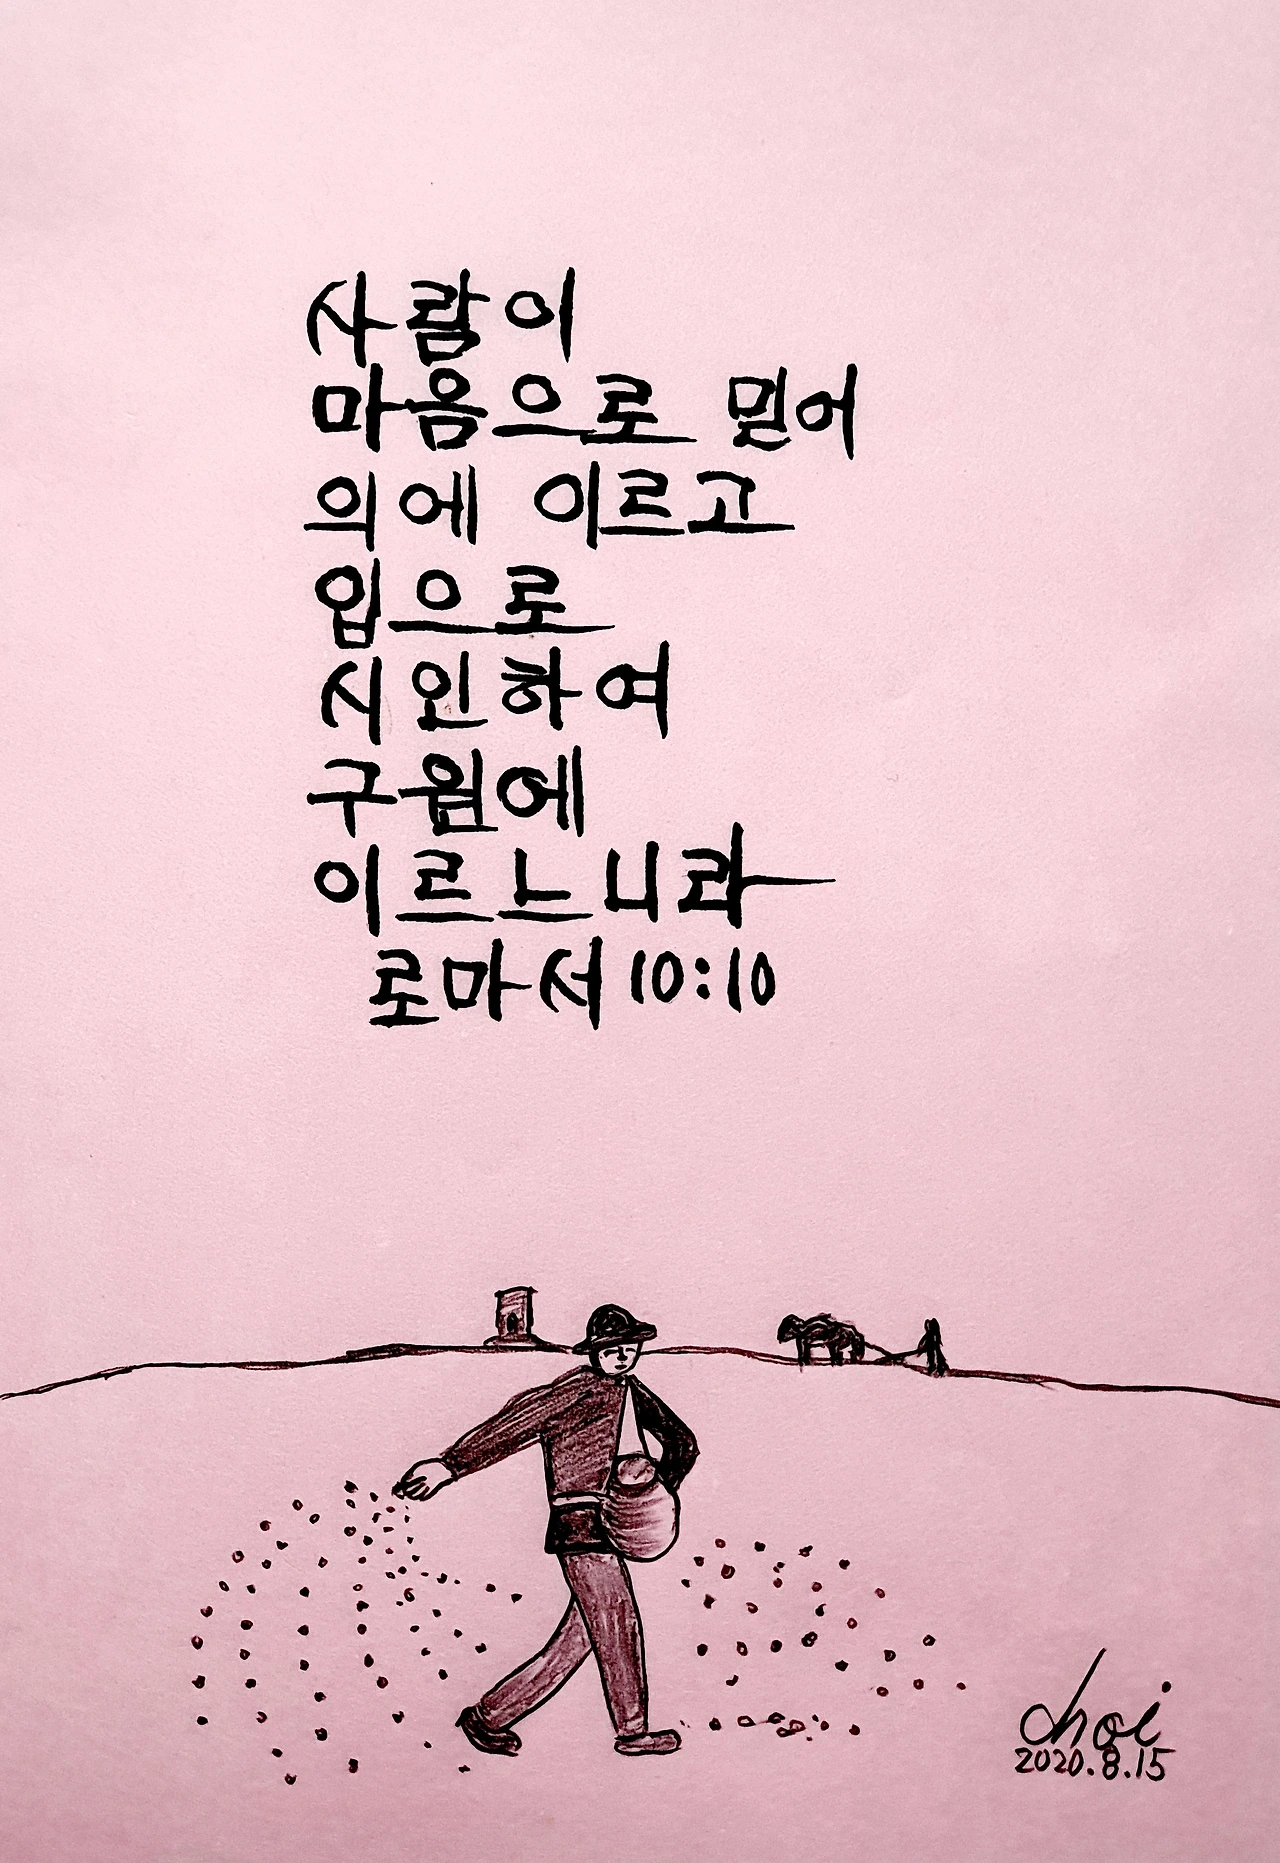 사람이
마음으로 믿어
의에 이르고
입으로
시인하여
구원에
이르느니라
로마서 10:10
choi
2020.8.15